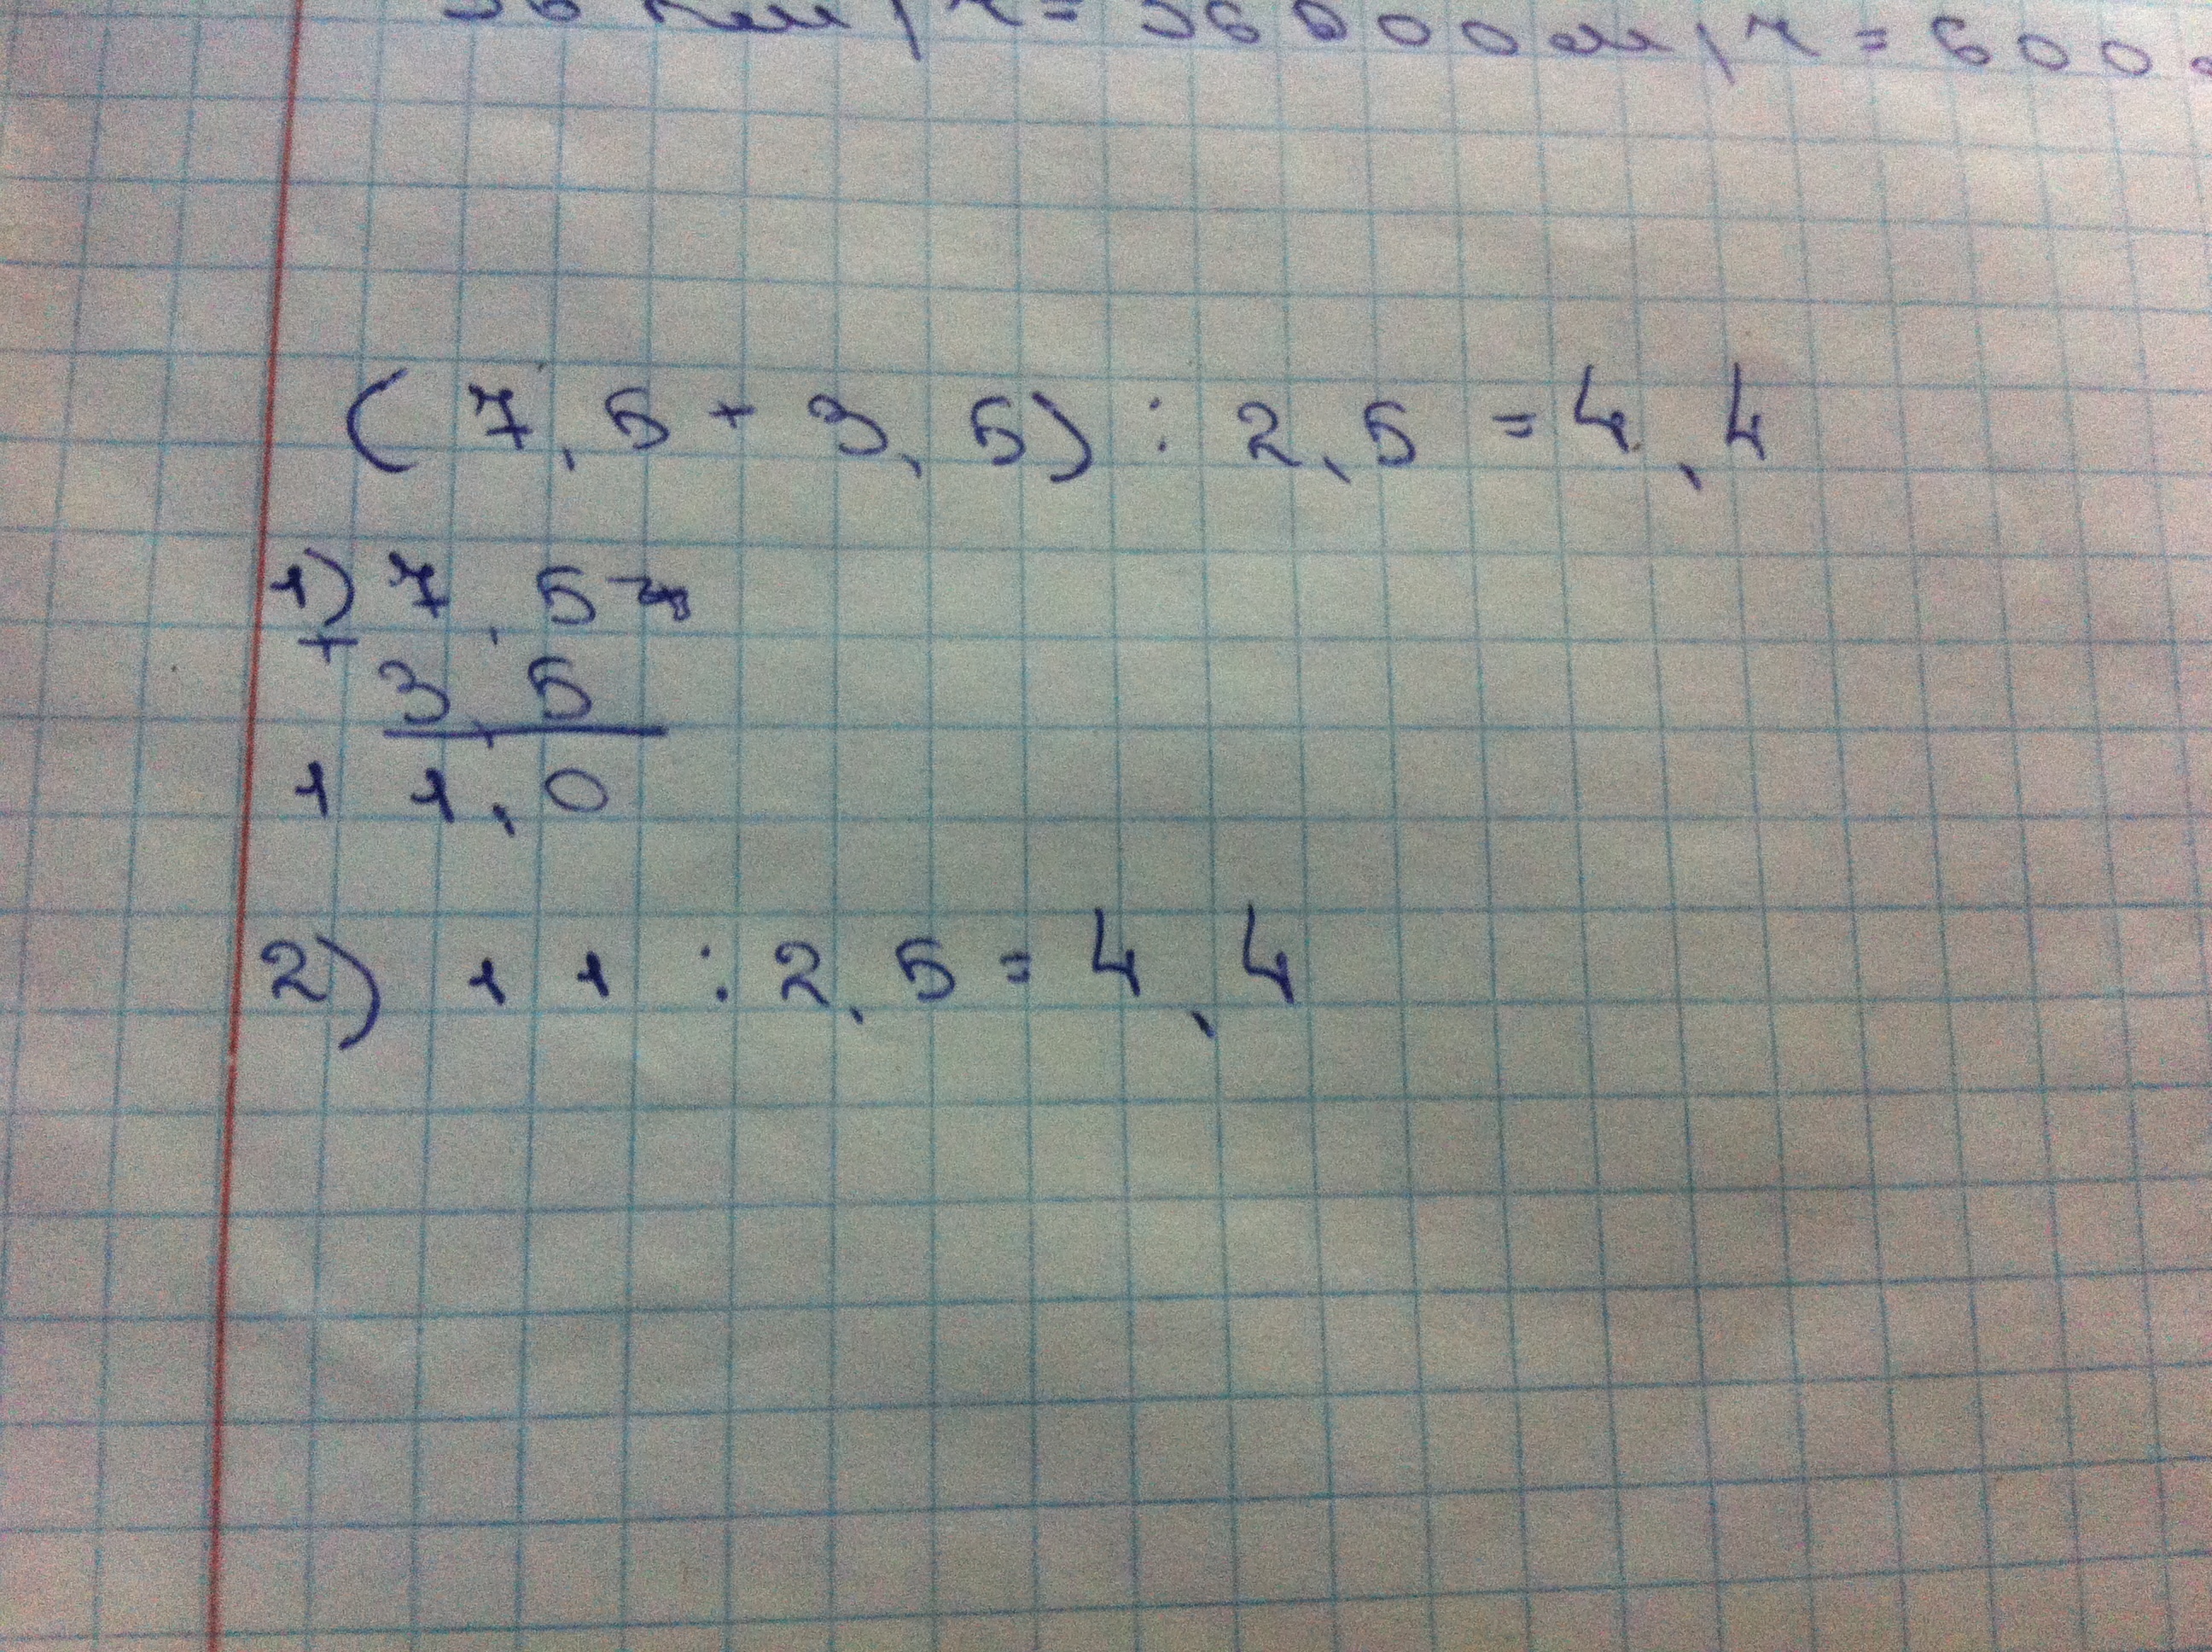 36 км/ч = 36000 м/ч = 600
(7,5 + 3,5) : 2,5 = 4,4
1) 7,5
+
3,5
11,0
2) 11 : 2,5 = 4,4